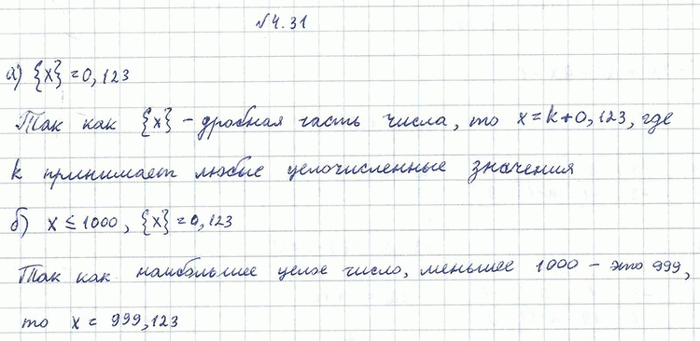 №4.31
а) {x} = 0,123
Так как {x} - дробная часть числа, то x = k+0,123, где
k принимает любые целочисленные значения
б) x ≤ 1000, {x} = 0,123
Так как наибольшее целое число, меньшее 1000 - это 999,
то x = 999,123